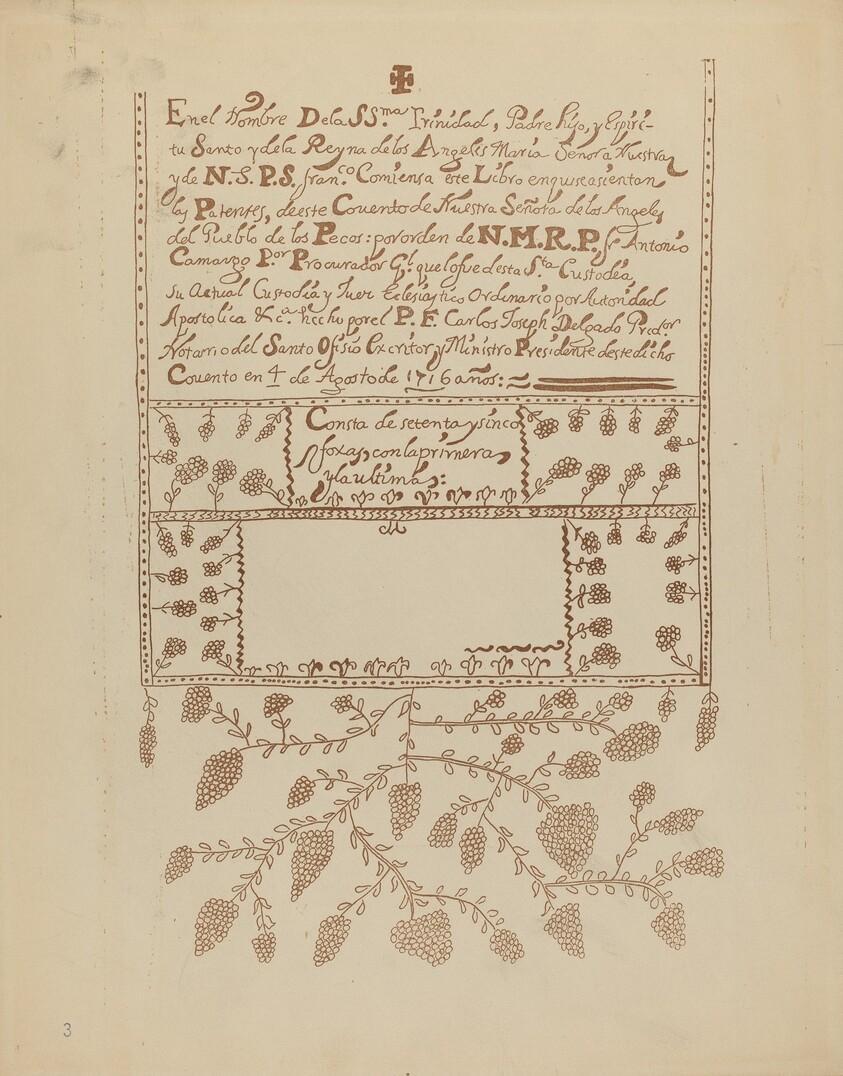 En el Nombre De la SS.ma Trinidad, Padre hijo, y Espiri-
tu Santo y de la Reyna de los Angeles Maria Señora Nuestra
y de N.S. P.S. fran.co Comiensa este Libro en q se asientan
las Patentes, de este Covento de Nuestra Señora de los Angeles
del Pueblo de los Pecos: por orden de N.M.R.P. fr Antonio
Camargo P.or Procurador G.l que lo fue de esta S.ta Custodia,
Su Actual Custodia y Juez Eclesiastico Ordinario por Autoridad
Apostolica &c.a hecho por el P. F. Carlos Joseph Delgado Pred.or
Notario del Santo Ofisio Escritor y Ministro Presidente deste dicho
Covento en 4 de Agosto de 1716 años:
Consta de setenta y sinco
foxas, con la primera,
y la ultima:
3